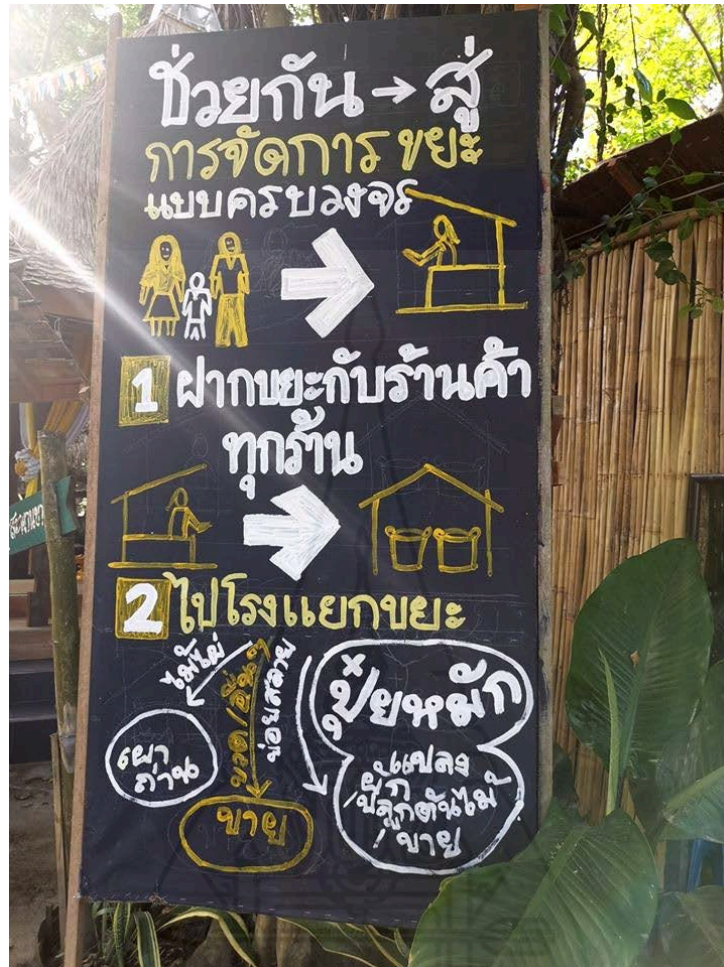 ช่วยกัน → สู่
การจัดการ ขยะ
แบบครบวงจร
1 ฝากขยะกับร้านค้า
ทุกร้าน
2 ไปโรงแยกขยะ
ไม้ไผ่
ขวด/อื่นๆ
ย่อยสลาย
เผา
ถ่าน
ขาย
ปุ๋ยหมัก
แปลง
ผัก
/ปลูกต้นไม้
/ขาย